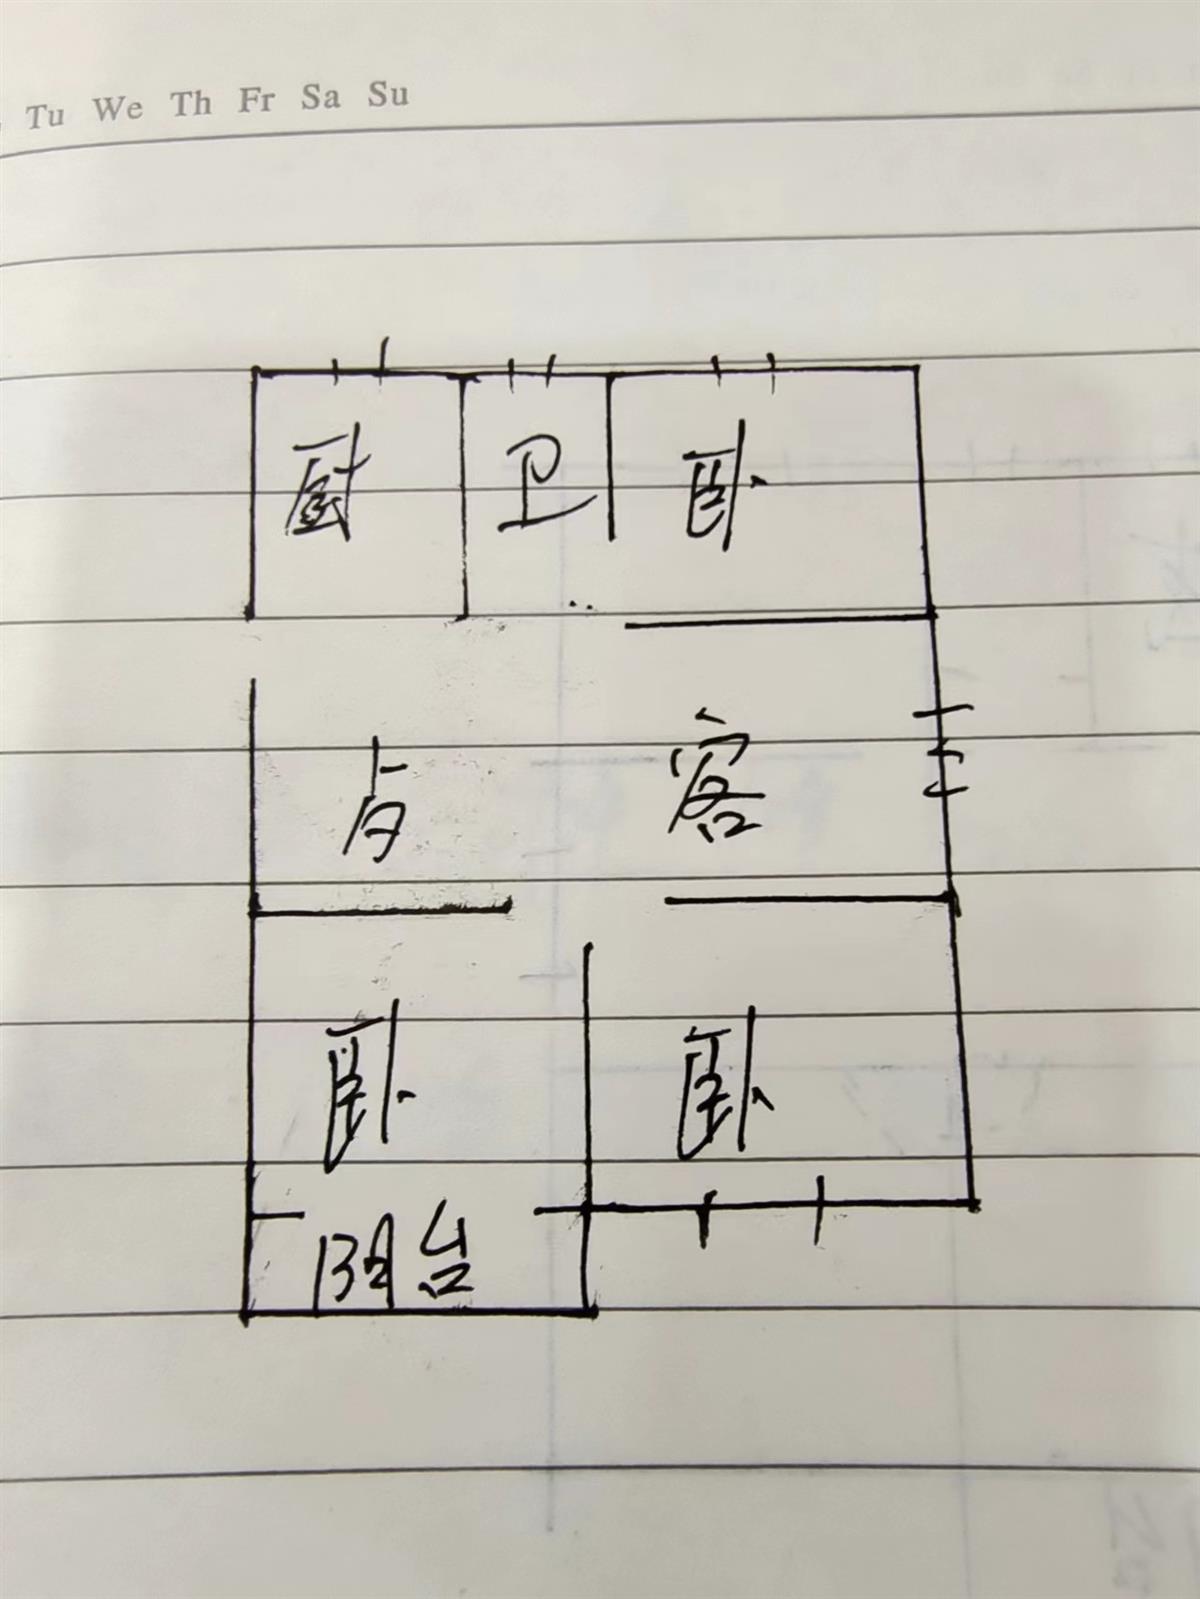 Tu We Th Fr Sa Su
厨 卫 卧
客
卧 卧
阳台